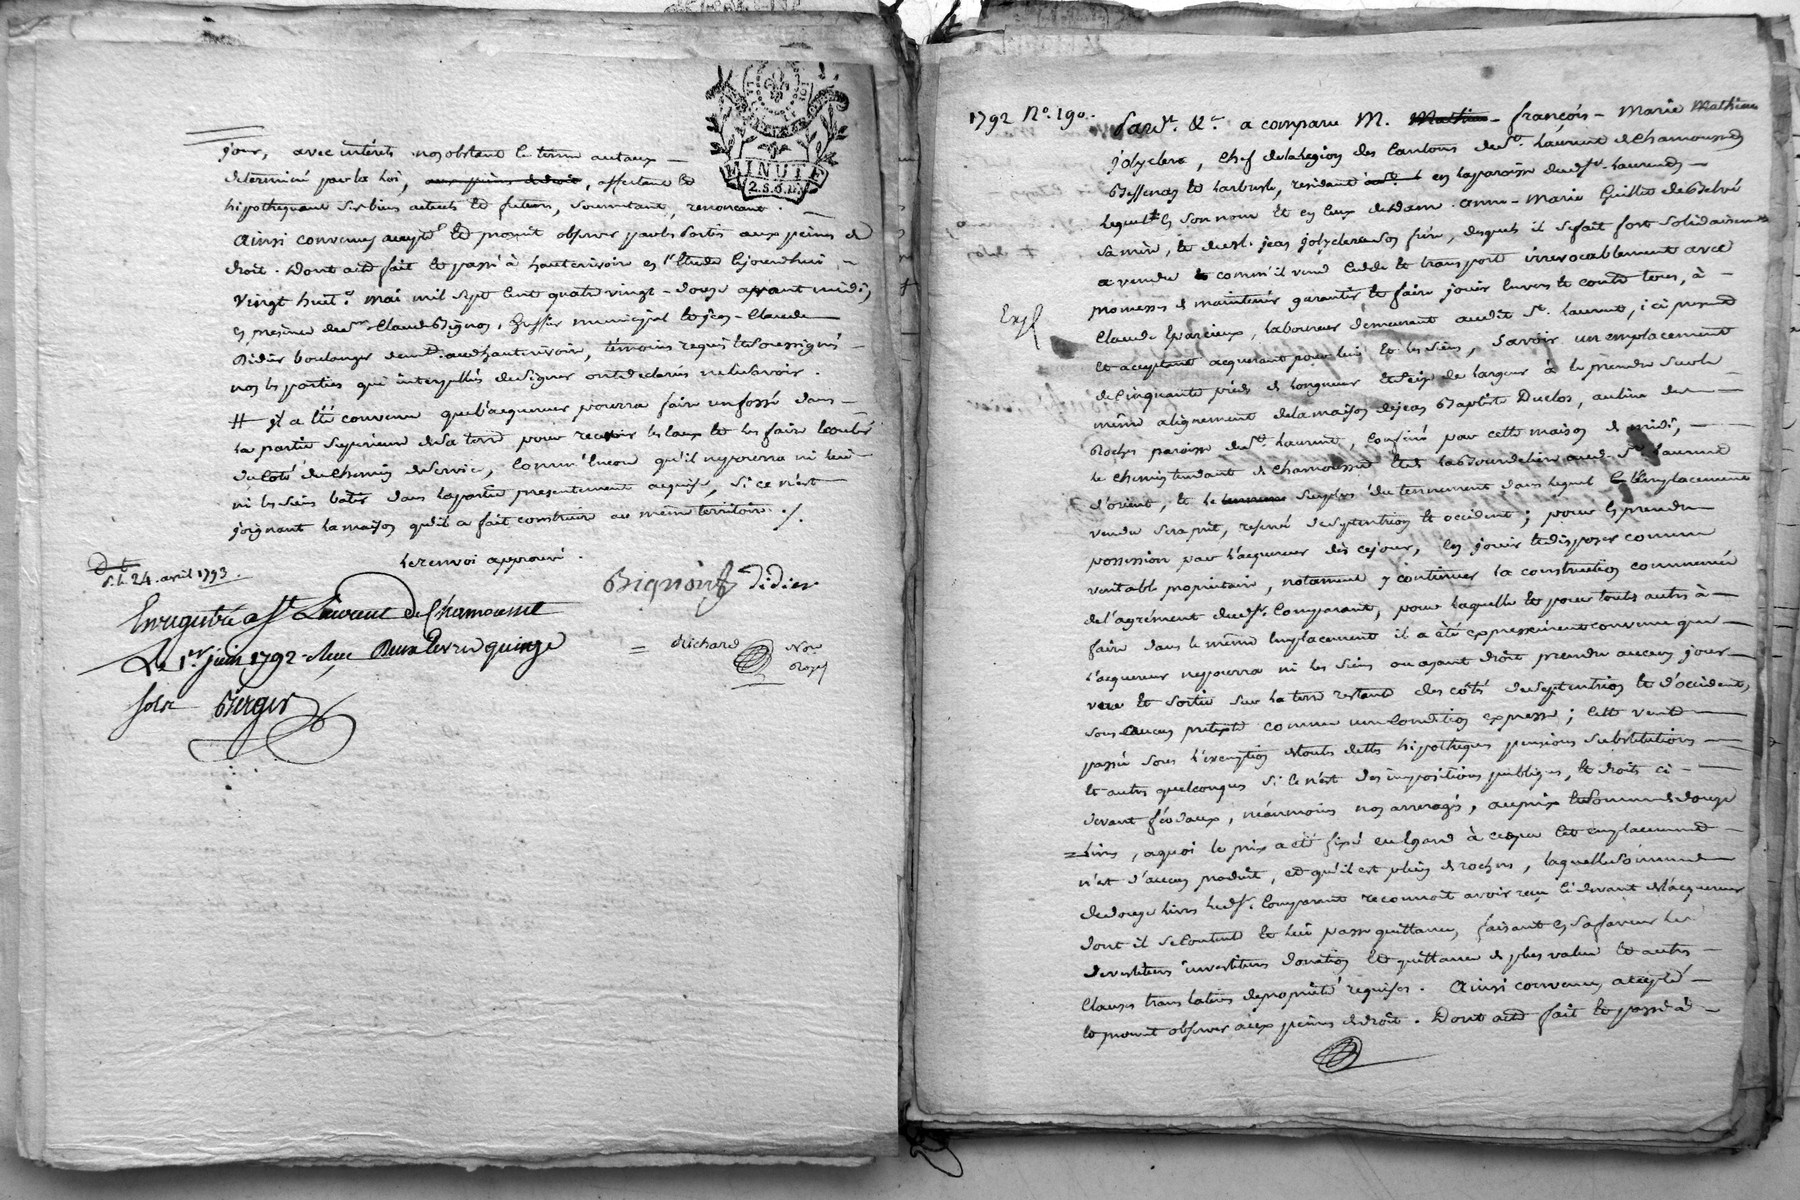 MINUTE
2.S.6.D.
jour, avec intérêts nonobstant le terme au taux
déterminé par la loi, aux peines de droit, affectant et
hypothéquant ses biens actuels et futurs, soumettant, renonçant.
Ainsi convenu, accepté et promit observer par les parties aux peines de
droit. Dont acte fait et passé à hauterivoire en l'étude le jourdhui
vingt huit mai mil sept cent quatre vingt-douze avant midi,
en présence de Claude Bignon, officier municipal et jean-Claude
Didier boulanger audit hauterivoire, témoins requis et soussignés
non les parties qui interpellés de signer ont déclarés ne le savoir.
# il a été convenu que l'acquéreur pourra faire un fossé dans
la partie supérieure de sa terre pour recevoir les eaux et les faire couler
du coté du chemin de service, comm'encore qu'il ne pourra ni lui
ni les siens batir dans la partie presentement acquise, si ce n'est
joignant la maison qu'il a fait construire au même territoire ./.
le renvoi approuvé.
D t
d. l. 24. avril 1793.
Bignon Didier
Enregistré a St Laurent de Chamousset
Le 1er juin 1792 - Reçu Deux livres quinze
sols Berger
= Richard Nre
Royal
1792 No. 190.
Pard. &c. a comparu M. Mathieu françois-Marie Mathieu
jolyclerc, Chef de la légion des Cantons de St. Laurent de Chamousset
Bessenay et Larbresle, résident en la paroisse dudit St. Laurent
lequel en son nom et en ceux de dame anne-Marie Guillet de
sa mère, et de sr. jean jolyclerc son frère, desquels il se fait fort solidairement
a vendu comm'il vend cedde et transporte irrevocablement avec
promesses de maintenir garantir et faire jouir envers et contre tous, à
Exp
Claude Parcieux, laboureur demeurant audit St. laurent, ici present
et acceptant acquerant pour lui et les siens, Savoir un emplacement
de Cinquante pieds de longueur et seize de largeur à le prendre sur le
même alignement de la maison de jean Baptiste Duclos, au lieu des
Roches paroisse de St. laurent, confiné par cette maison de midi,
le chemin tendant de chamousset et de la audit St laurent
d'orient, et le terrein surplus du tennement dans lequel l'Emplacement
vendu sera prit, reservé de septentrion et occident; pour en prendre
possession par l'acquereur dès ce jour, en jouir et disposer comme
veritable proprietaire, notament y continuer la construction commencée
de l'agrément dudit sr. Comparant, pour laquelle et pour toutes autres à
faire dans le même Emplacement il a été expressément convenu que
l'acquereur ne pourra ni les siens ou ayant droit prendre aucun jour
vue et sortie sur la terre restante des cotés de septentrion et d'occident,
sous aucun pretexte comme une condition expresse; Cette vente
passée sous l'exemption de toutes dettes hipotheques pensions substitutions
et autres quelconques si ce n'est des impositions publiques, et droits ci
devant féodaux, néanmoins non arreragés, au prix et somme de douze
livres, a quoi le prix a été fixé eu égard à ce que cet emplacement
n'est d'aucun produit, et qu'il est plein de rochers, laquelle somme
de douze livres ledit sr. Comparant reconnoit avoir reçu ci devant de l'acquereur
dont il se contente et lui passe quittance, faisant en sa faveur les
devestitures investitures donation et quittance de plus value et autres
Clauses translatives de propriété requises. Ainsi convenu, accepté
et promit observer aux peines de droit. Dont acte fait et passé à